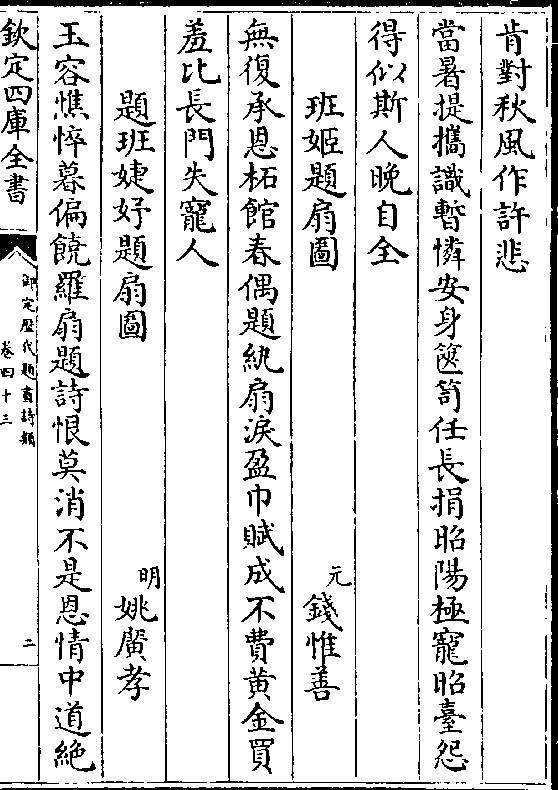 肯對秋風作許悲
當暑提攜識暫憐安身篋笥任長捐昭陽極寵昭臺怨
得似斯人晚自全
班姬題扇圖 元 錢惟善
無復承恩柘館春偶題紈扇淚盈巾賦成不費黄金買
羞比長門失寵人
題班婕妤題扇圖 明 姚廣孝
玉容憔悴暮偏饒羅扇題詩恨莫消不是恩情中道絶
欽定四庫全書
御定歷代題畫詩類
卷四十三
二